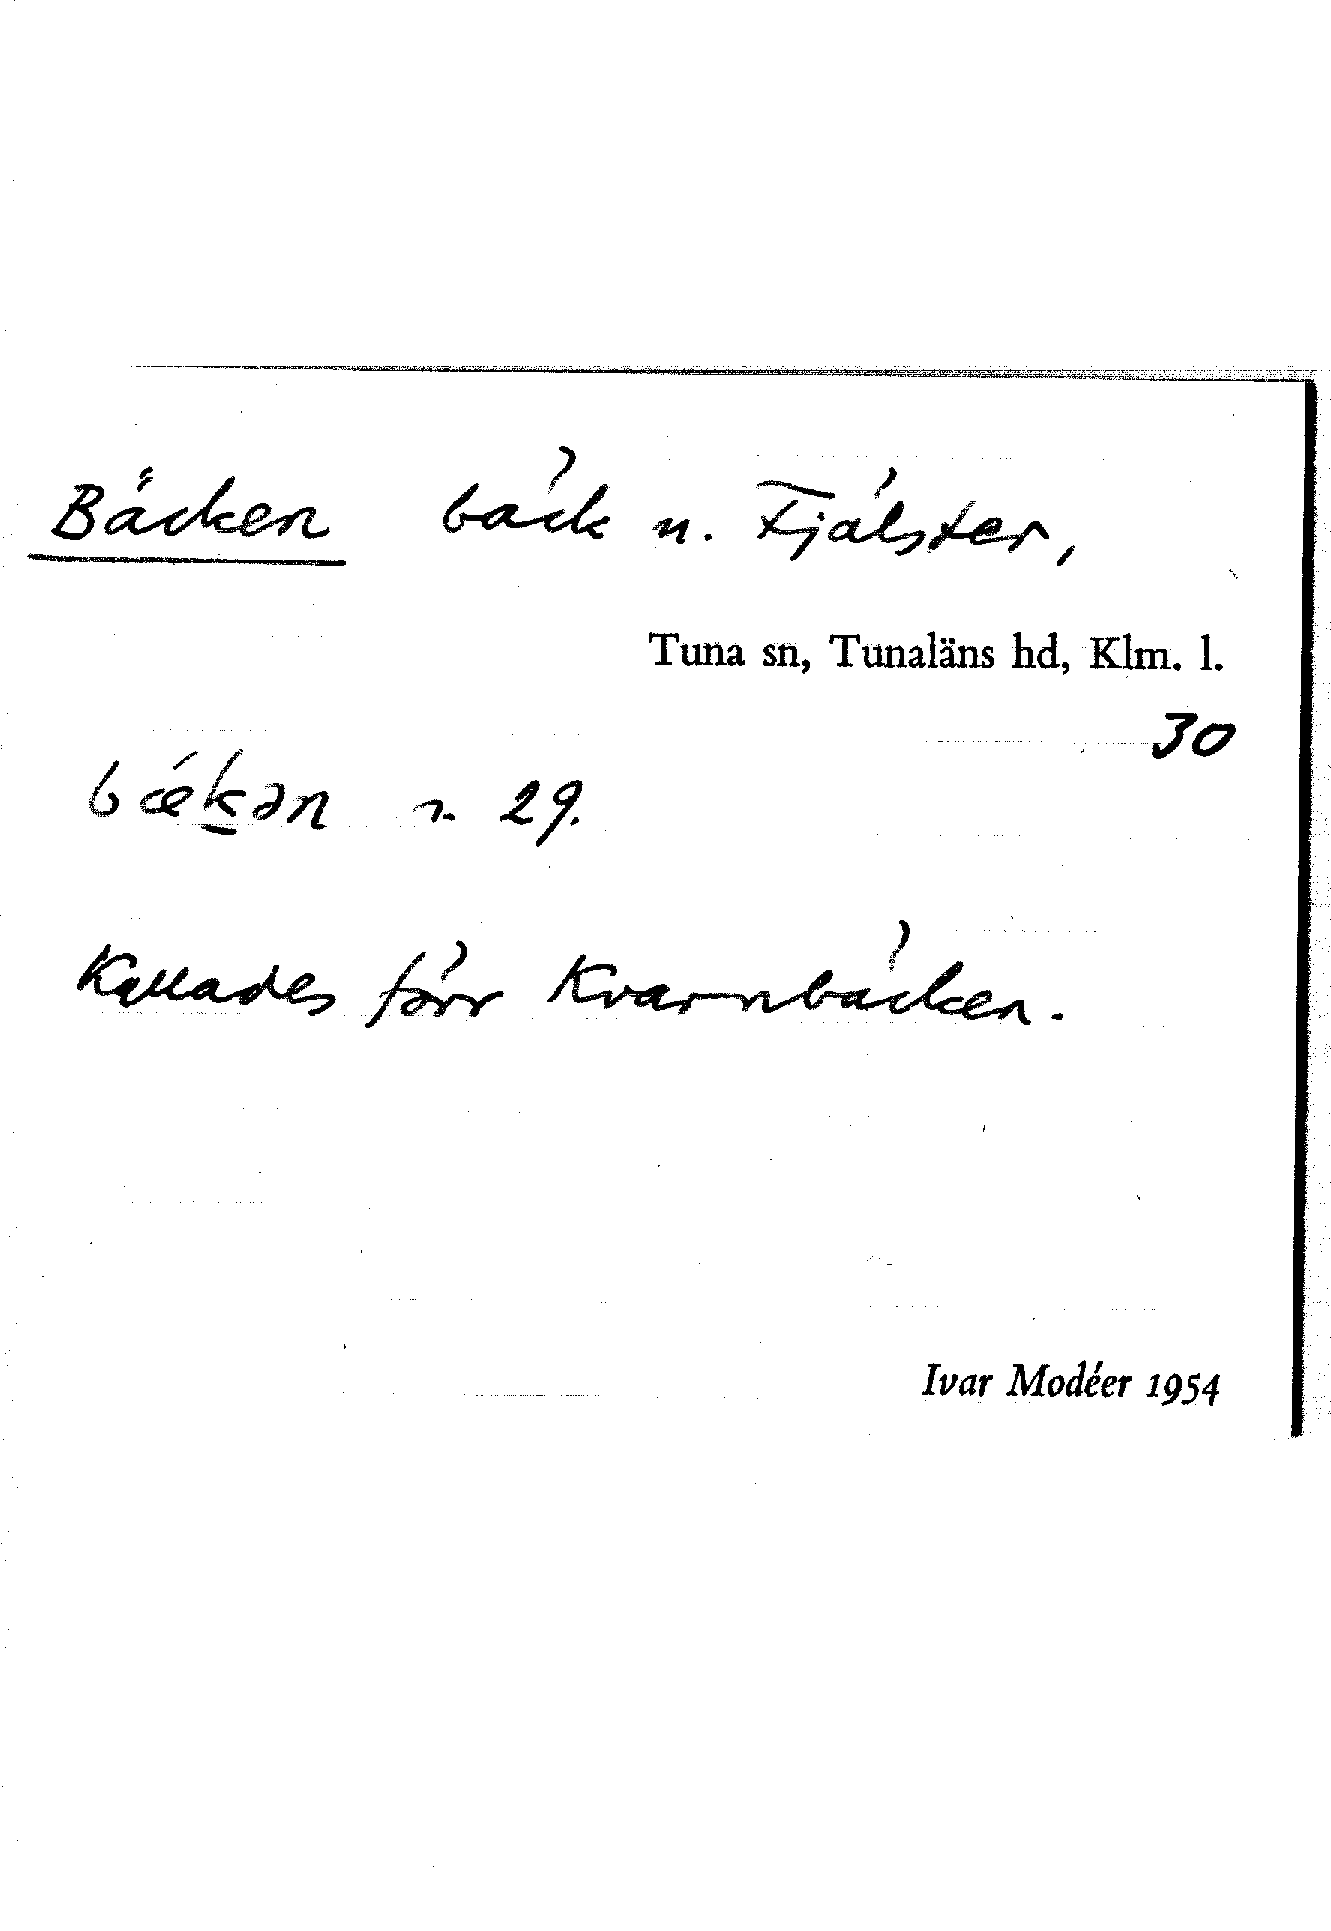 Bäcken bäck n. Fjälster,
Tuna sn, Tunaläns hd, Klm. l.
30
bǽk̲ən n. 29.
Kallades förr Kvarnbäcken.
Ivar Modéer 1954